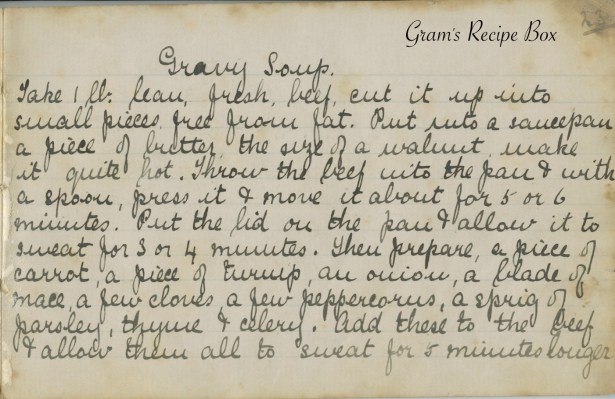 Gram's Recipe Box
Gravy Soup.
Take 1 lb. lean, fresh, beef, cut it up into
small pieces free from fat. Put into a saucepan
a piece of butter the size of a walnut, make
it quite hot. Throw the beef into the pan & with
a spoon, press it & move it about for 5 or 6
minutes. Put the lid on the pan & allow it to
sweat for 3 or 4 minutes. Then prepare, a piece of
carrot, a piece of turnip, an onion, a blade of
mace, a few cloves, a few peppercorns, a sprig of
parsley, thyme & celery. Add these to the beef
& allow them all to sweat for 5 minutes longer